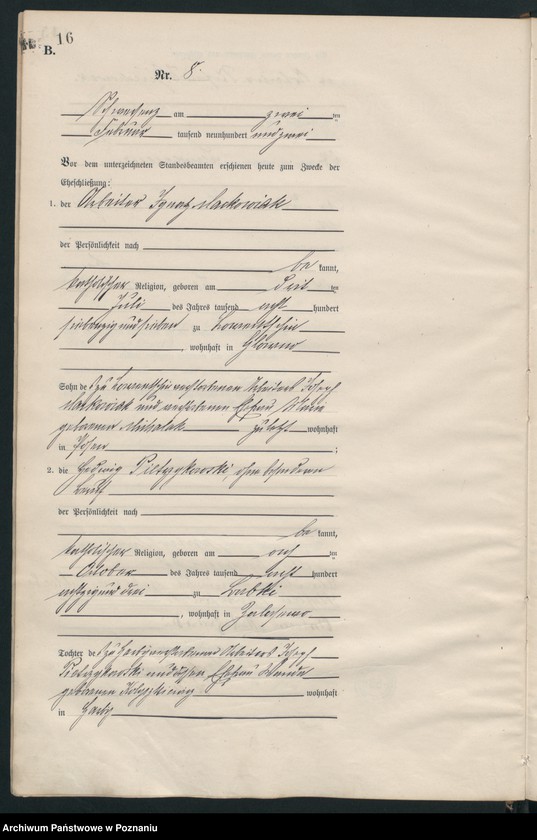 16
B.
Nr. 8.
Schwersenz am zwei ten
Februar tausend neunhundert und zwei
Vor dem unterzeichneten Standesbeamten erschienen heute zum Zwecke der
Eheschließung:
1. der Arbeiter Ignatz Mackowiak
der Persönlichkeit nach
be kannt,
katholischer Religion, geboren am ten
Juli des Jahres tausend acht hundert
siebenzig und sieben zu
, wohnhaft in Glowno
Sohn des zu verstorbenen Arbeiters Josef
Mackowiak und verstorbenen Ehefrau Maria
geborenen Michalak zuletzt wohnhaft
in Posen ;
2. die Hedwig Pietzykowski ohne besonderen
Beruf
der Persönlichkeit nach
be kannt,
katholischer Religion, geboren am ten
October des Jahres tausend acht hundert
achtzig und drei zu
, wohnhaft in
Tochter des zu verstorbenen Arbeiters Josef
Pietzykowski und dessen Ehefrau
geborenen wohnhaft
in
Archiwum Państwowe w Poznaniu